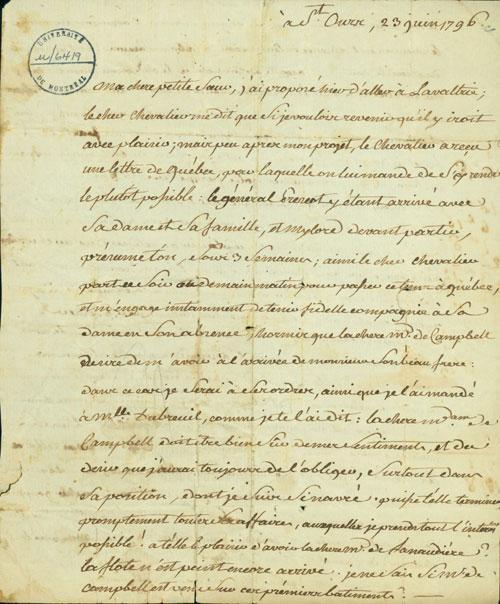 à St. Ours, 23 juin 1796
UNIVERSITÉ
u/6419
DE MONTREAL
Ma chere petite Sœur, j'ai proposé hier d'aller à Lavaltrie;
le cher Chevalier me dit que si je voulois revenir qu'il y iroit
avec plaisir; mais peu apres mon projet, le Chevalier a reçu
une lettre de Québec, par laquelle on lui mande de s'y rendre
le plutot possible: le général Prescot y étant arrivé avec
Sa dame et Sa famille, et mylord devant partir,
présume ton, sous 3 Semaines; ainsi le cher chevalier
part ce Soir ou demain matin pour passer ce tems à Québec,
et m'engage instamment de tenir fidelle compagnie à Sa
dame en Son absence; hormis que la chere me. de Campbell
desire de m'avoir à l'arrivée de monsieur Son beau frere:
dans ce cas je serai à ses ordres, ainsi que je l'ai mandé
à Mlle Dabreuil, comme je te l'ai dit: la chere mdame de
Campbell doit être bien Sûr de mes Sentiments, et du
desir que j'aurai toujours de l'obliger, Surtout dans
Sa position, dont je Suis Si navré. puisse telle terminer
promptement toutes Ses affaires, auxquelles je prends tout l'intérêt
possible! a télle le plaisir d'avoir la chere me. de Lanaudière?
la flote n'est point encore arrivé. je ne Sais Si me. de
campbell est venu Sur ces prémiers batiments? —